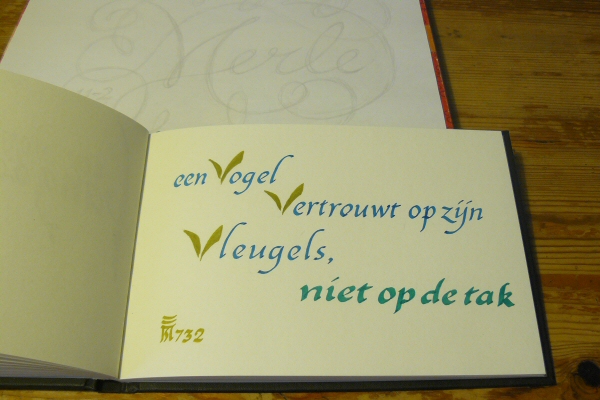 Merle
een Vogel
Vertrouwt op zijn
Vleugels,
niet op de tak
732